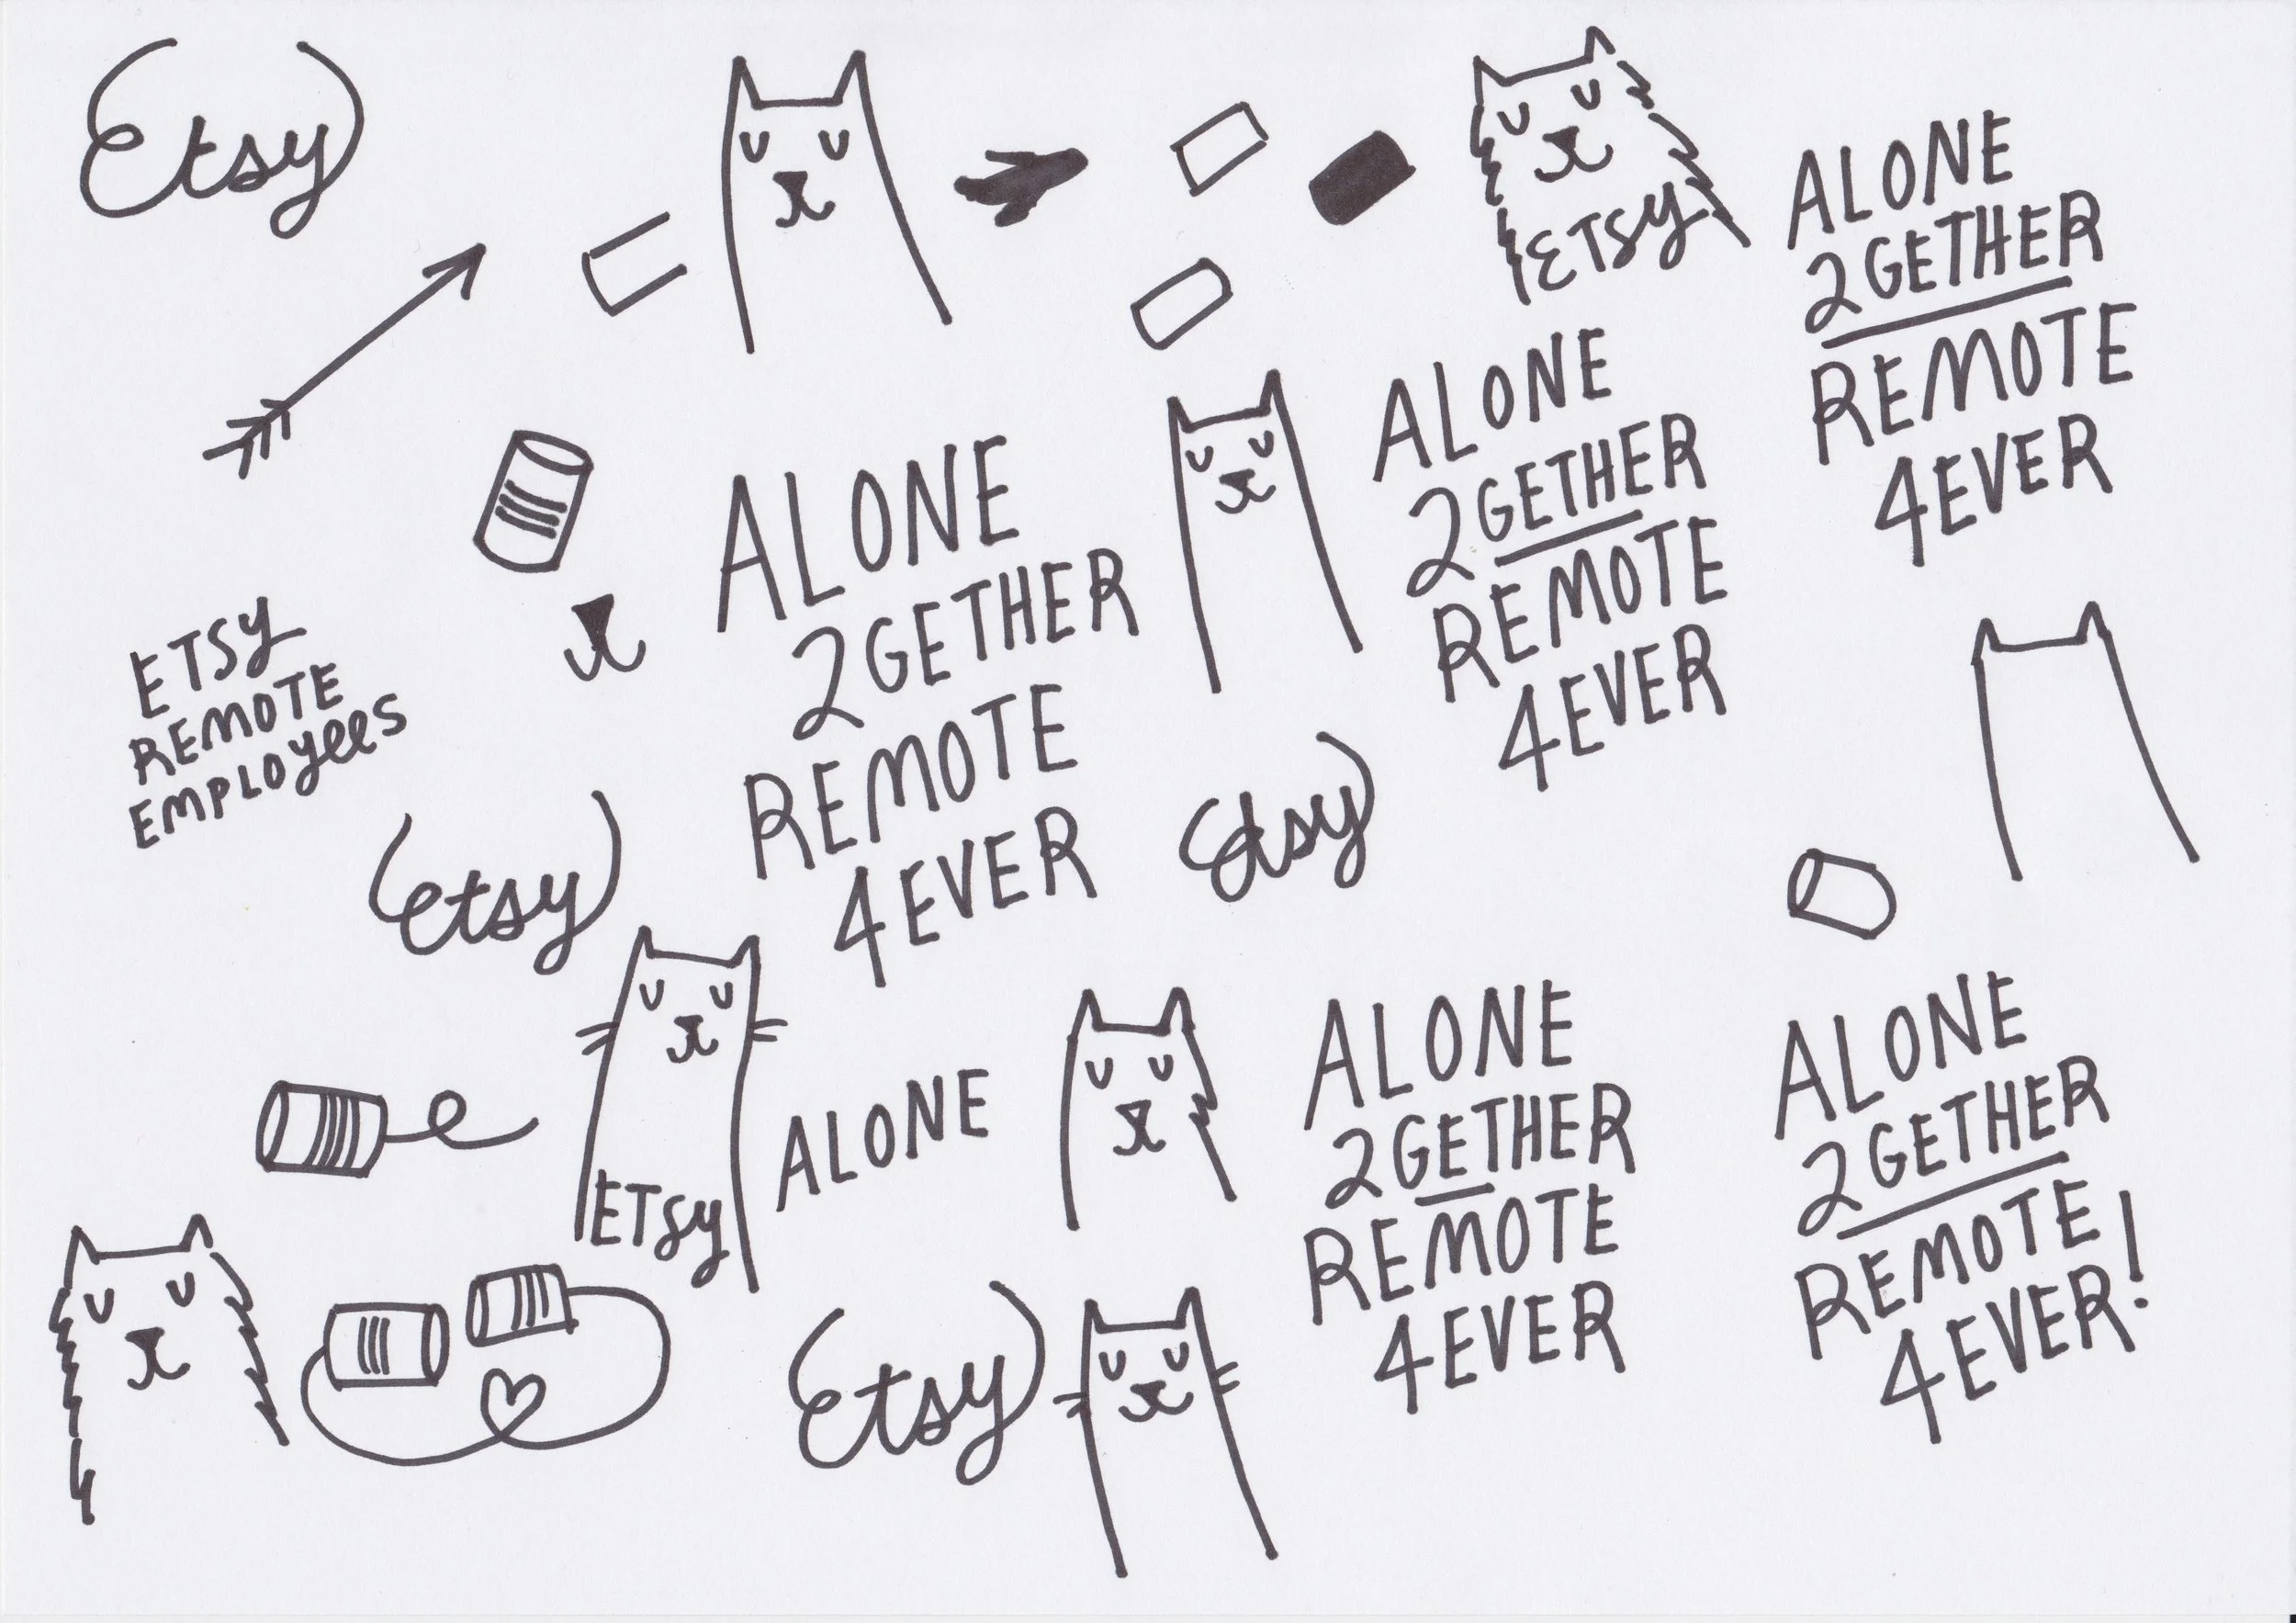 Etsy
ETSY
ALONE
2GETHER
REMOTE
4EVER
ALONE
2GETHER
REMOTE
4EVER
ALONE
2GETHER
REMOTE
4EVER
ETSY
REMOTE
EMPLOYEES
Etsy
Etsy
ETSY
ALONE
ALONE
2GETHER
REMOTE
4EVER
ALONE
2GETHER
REMOTE
4EVER!
Etsy